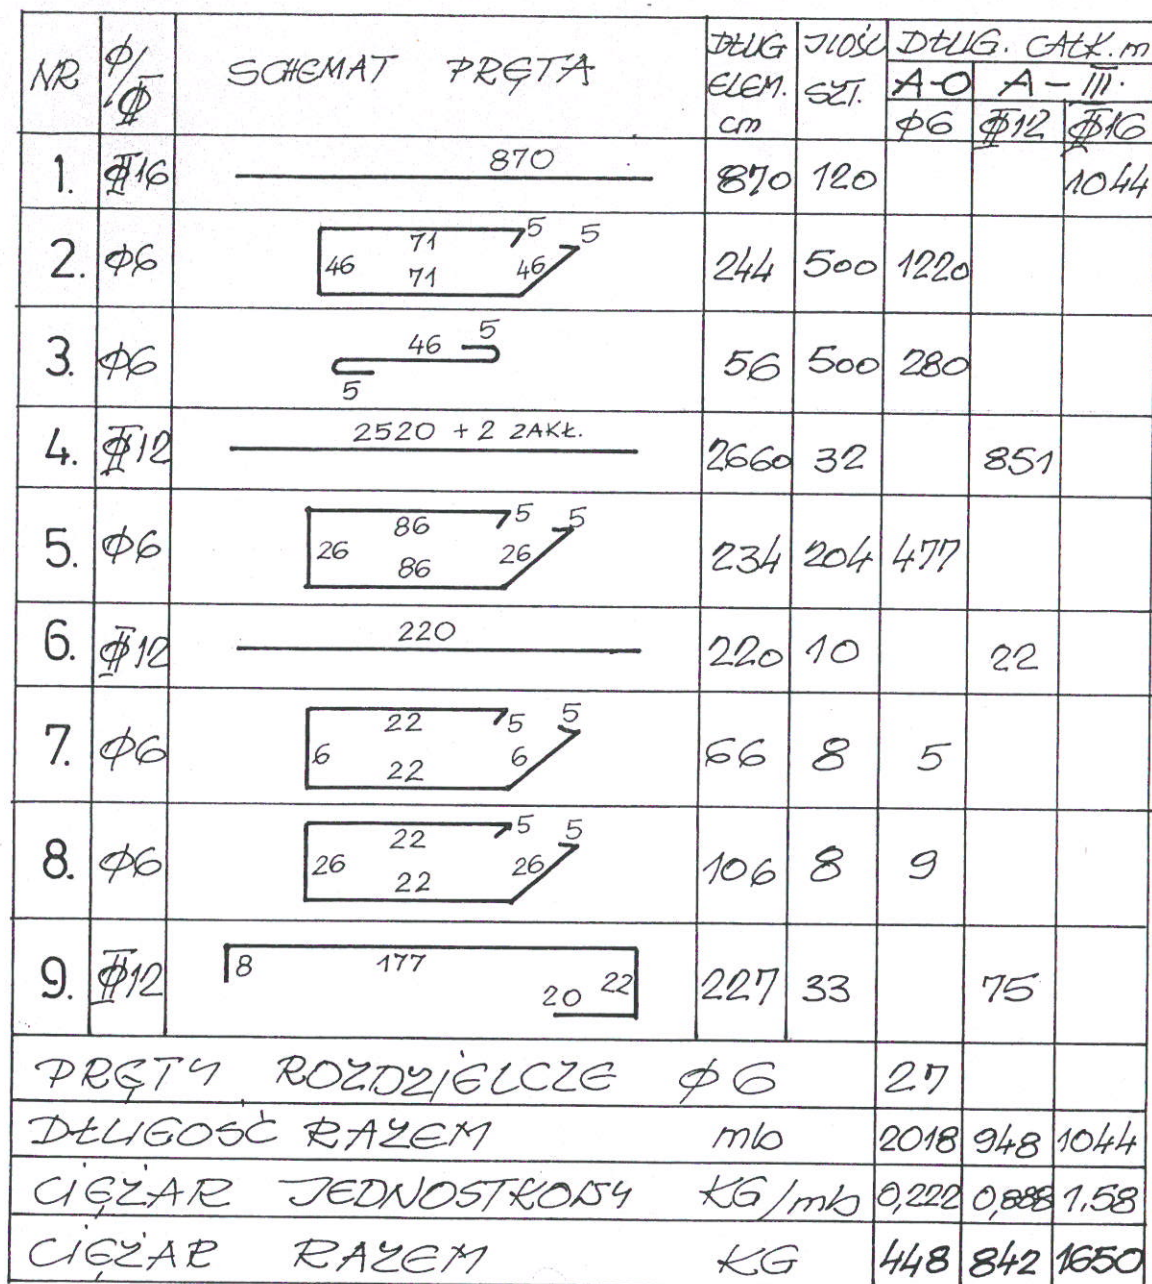 NR Φ/Φ̄ SCHEMAT PRĘTA DŁUG ELEM. cm ILOŚĆ SZT. DŁUG. CAŁK. m
A-O A-III.
Φ6 Φ12 Φ16
1. Φ16 870 870 120 1044
2. Φ6 46 71 71 46 5 5 244 500 1220
3. Φ6 46 5 5 56 500 280
4. Φ12 2520 + 2 ZAKŁ. 2660 32 851
5. Φ6 26 86 86 26 5 5 234 204 477
6. Φ12 220 220 10 22
7. Φ6 6 22 22 6 5 5 66 8 5
8. Φ6 26 22 22 26 5 5 106 8 9
9. Φ12 8 177 20 22 227 33 75
PRĘTY ROZDZIELCZE Φ6 27
DŁUGOŚĆ RAZEM mb 2018 948 1044
CIĘŻAR JEDNOSTKOWY KG/mb 0,222 0,888 1.58
CIĘŻAR RAZEM KG 448 842 1650